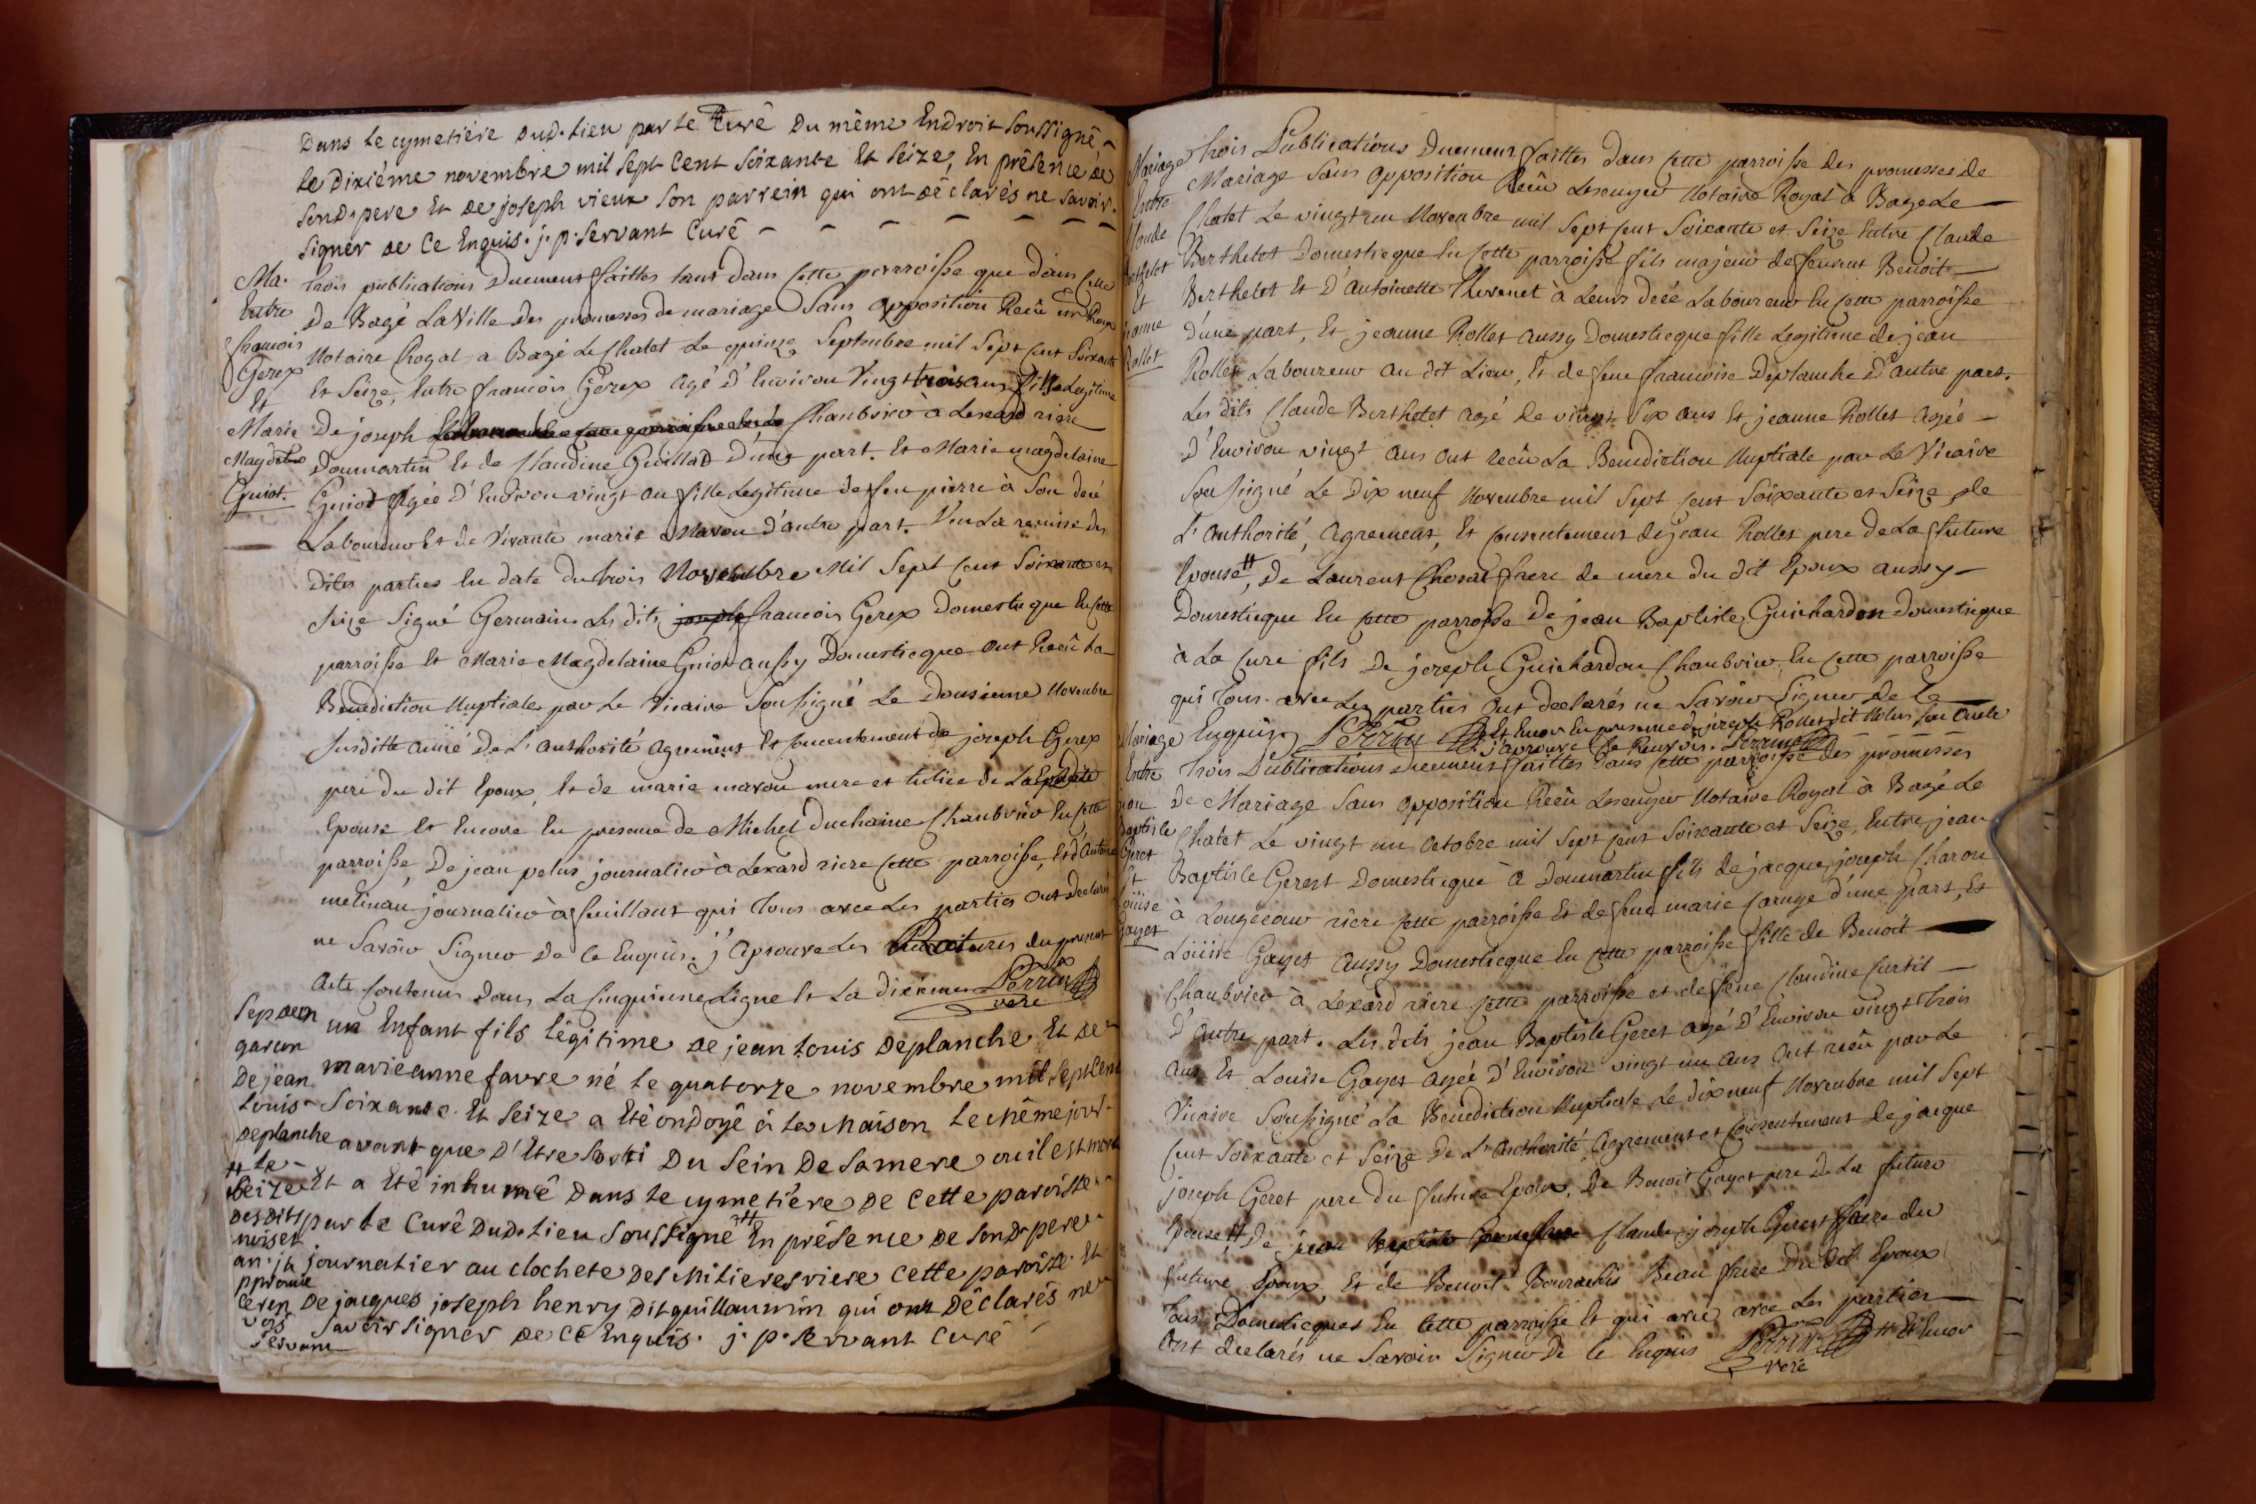 Dans le cymetiére dud. Lieu par le Curé Du même Endroit soussigné
le Dixiéme novembre mil sept Cent soixante Et seize, En présence de
sond. pere Et de joseph vieux son parrein qui ont déclarés ne savoir
signer de Ce Enquis. j. p. servant Curé
Ma.
Entre
francois
Gerex
Et
Marie
Magdel.e
Guiot.
trois publications Duement faittes tant dans Cette parroisse que dans Celle
De Bagé La Ville des promesses de mariage Sans opposition Recu
Notaire Royal a Bagé Le Chatel Le quinze Septembre mil Sept Cent Soixante
Et Seize, Entre francois Gerex agé d'Environ Vingt trois ans fils Legitime
De joseph Chanbrier à Lexard riere
Doumartin Et de Claudine Guillad D'une part. Et Marie magdelaine
Guiot Agée d'Environ vingt an fille Legitime de feu pierre à Son decé
Laboureur Et de Vivante marie Mavou d'autre part. Vu La remise des
Dites parties En date du trois Novembre Mil Sept Cent Soixante et
Seize Signé Germain. Les dits joseph francois Gerex Domesticque En Cette
parroisse Et Marie Magdelaine Guiot aussy Domesticque ont Recû La
Benediction Nuptiale par Le Vicaire Soussigné Le Dousieme Novembre
Susditte année De L'authorité agrement Et Concentement de joseph Gerex
pere du dit Epoux, Et de marie mavou mere et tutrice de La
Epouse Et Encore En presence de Michel duchaine Chanbrier En Cette
parroisse, De jean pelus journalier à Lexard riere Cette parroisse, Et d'Antoine
metinau journalier à feuillans qui tous avec Les parties ont Declarés
ne Savoir Signer De Ce Enquis. j'aprouve Les Ratures du present
Acte Contenus dans La Cinquieme Ligne Et La dixieme Perrin
vere
Sep. d'un
garcon
De jean
Louis
Deplanche
un Enfant fils légitime De jean Louis Deplanche Et de
marieanne favre né le quatorze novembre mil sept Cent
soixante. Et seize a Eté ondoyé á la Maison le Même jour
avant que D'Etre sorti Du sein De sa mere ou il est mort
Et a Eté inhumé Dans le cymetiére De Cette paroisse
par le Curé Dud. Lieu soussigné # En présence De sond. pere
journalier au clochete Des Mitieres riere Cette paroisse. Et
De jacques joseph henry Dit guillaumin qui ont Déclarés ne
savoir signer De Ce Enquis. j. p. servant Curé
# le
seize
Desdits
mois et
an. j'a
pprouve
Ce ren
vois
servant
Mariage
Entre
Claude
Berthelot
Et
jeanne
Rollet
trois Publications Duement faittes dans Cette parroisse des promesses de
Mariage Sans opposition Recûu Lescuyer Notaire Royal à Bage Le
Chatel Le vingt un Novenbre mil Sept Cent Soixante et Seize Entre Claude
Berthelot Domesticque En Cette parroisse fils majeur de feu Benoit
Berthelot Et D'antoinette Thevenet à Leurs decé Laboureur En Cette parroisse
D'une part, Et jeanne Rollet aussy Domesticque fille Legitime de jean
Rollet Laboureur au dit Lieu, Et de feue francoise Deplanche D'autre part.
Les dits Claude Berthelot agé de vingt Six ans Et jeanne Rollet agée
d'Environ vingt ans ont recû La Benediction Nuptiale par Le Vicaire
Soussigné Le Dix neuf Novenbre mil Sept Cent Soixante et Seize de
L'authorité, agrement, Et Consentement de jean Rollet pere de La future
Epouse #, De Laurent Chosal frere de mere du dit Epoux aussy
Domesticque En Cette parroisse De jean Baptiste Guichardon domesticque
à La Cure fils De joseph Guichardon Chanbrier En Cette parroisse
qui tous avec Les parties ont declarés ne Savoir Signer De Ce
Enquis Perrin # Et Encor En presence de joseph Rollet dit son oncle
j'aprouve Ce Renvois. Perrin
Mariage
Entre
jean
Baptiste
Geret
Et
Loüise
Gayet
trois Publications Duement faittes dans Cette parroisse des promesses
De Mariage Sans opposition Recûu Lescuyer Notaire Royal à Bagé Le
Chatel Le vingt un octobre mil Sept Cent Soixante et Seize, Entre jean
Baptiste Gerest Domesticque à Doumartin fils de jacque joseph Charon
à Longecour riere Cette parroisse Et de feue marie Caruge d'une part, Et
Loüise Gayet aussy Domesticque En Cette parroisse fille de Benoit
Chanbrier à Lexard riere Cette parroisse et de feue Claudine Curtil
D'autre part. Les dits jean Baptiste Geret agé d'Environ vingt trois
ans Et Louise Gayet agée d'Environ vingt un ans ont recû par Le
Vicaire Soussigné La Benediction Nuptiale Le dix neuf Novenbre mil Sept
Cent Soixante et Seize De L'authorité, Agrement et Consentement de jacque
joseph Geret pere du future Epoux, De Benoit Gayet pere De La future
Epouse # De jean Baptiste Claude joseph Gerest frere du
future Epoux, Et de Benoit Bourachis Beau frere Du dit Epoux
tous Domesticques En Cette parroisse Et qui avec Les parties
ont declarés ne Savoir Signer De Ce Enquis Perrin # Et Encor
vere